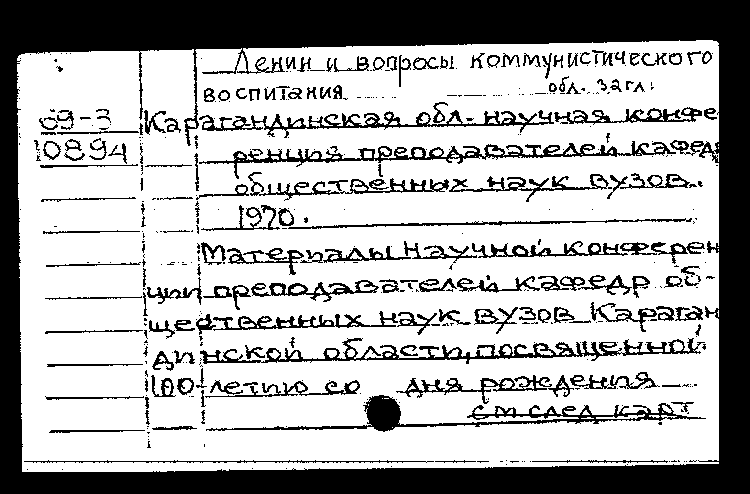 Ленин и вопросы коммунистического
воспитания обл. загл:
69-3 Карагандинская обл. научная конфе
10894 ренция преподавателей кафед
общественных наук вузов.
1970.
Материалы научной конферен
ции преподавателей кафедр об-
щественных наук вузов Караган
динской области, посвященной
100-летию со дня рождения
см след карт